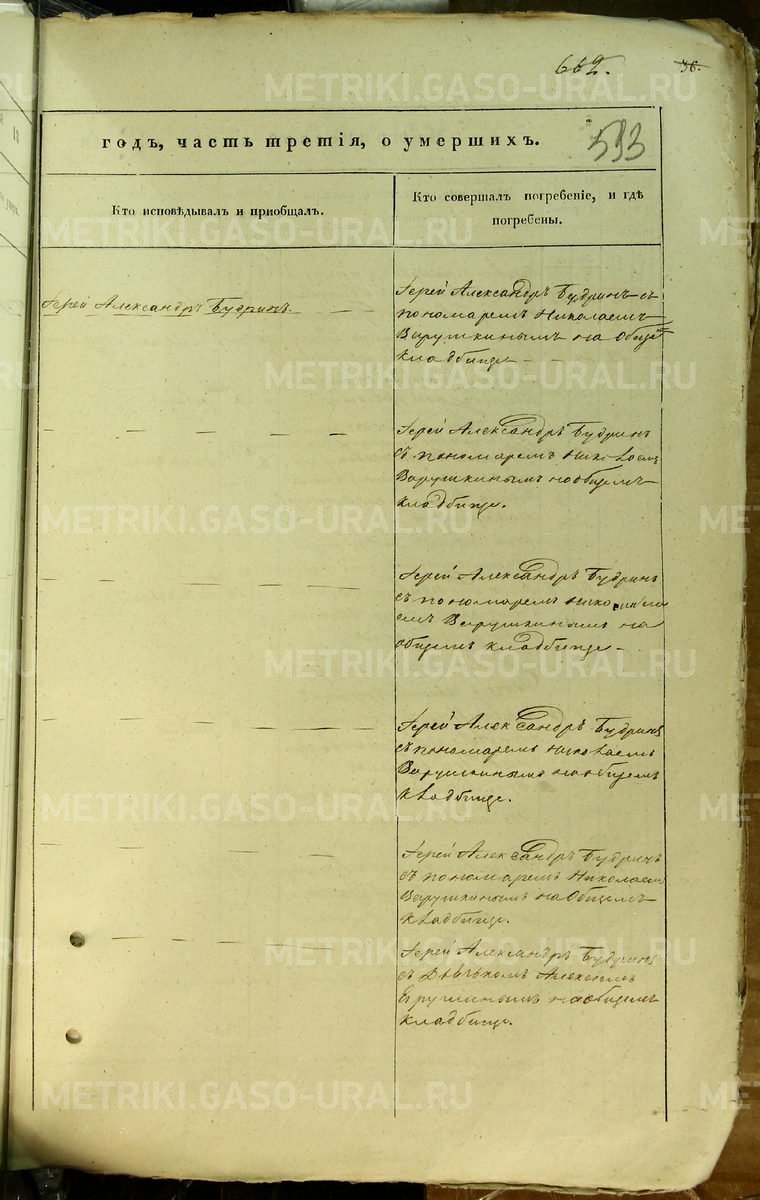 662.
36.
годъ, часть третія, о умершихъ.
593
Кто исповѣдывалъ и пріобщалъ.
Кто совершалъ погребеніе, и гдѣ
погребены.
Іерей Александръ Будринъ
Іерей Александръ Будринъ съ
пономаремъ Николаемъ
Варушкинымъ на общемъ
кладбище
Іерей Александръ Будринъ
съ пономаремъ Николаемъ
Варушкинымъ на общемъ
кладбище.
Іерей Александръ Будринъ
съ пономаремъ Никола
емъ Варушкинымъ на
общемъ кладбище
Іерей Александръ Будринъ
съ пономаремъ Николаемъ
Варушкинымъ на общемъ
кладбище.
Іерей Александръ Будринъ
съ пономаремъ Николаемъ
Варушкинымъ на общемъ
кладбище.
Іерей Александръ Будринъ
съ Дьячкомъ Алексіемъ
на общемъ
кладбище.
METRIKI.GASO-URAL.RU